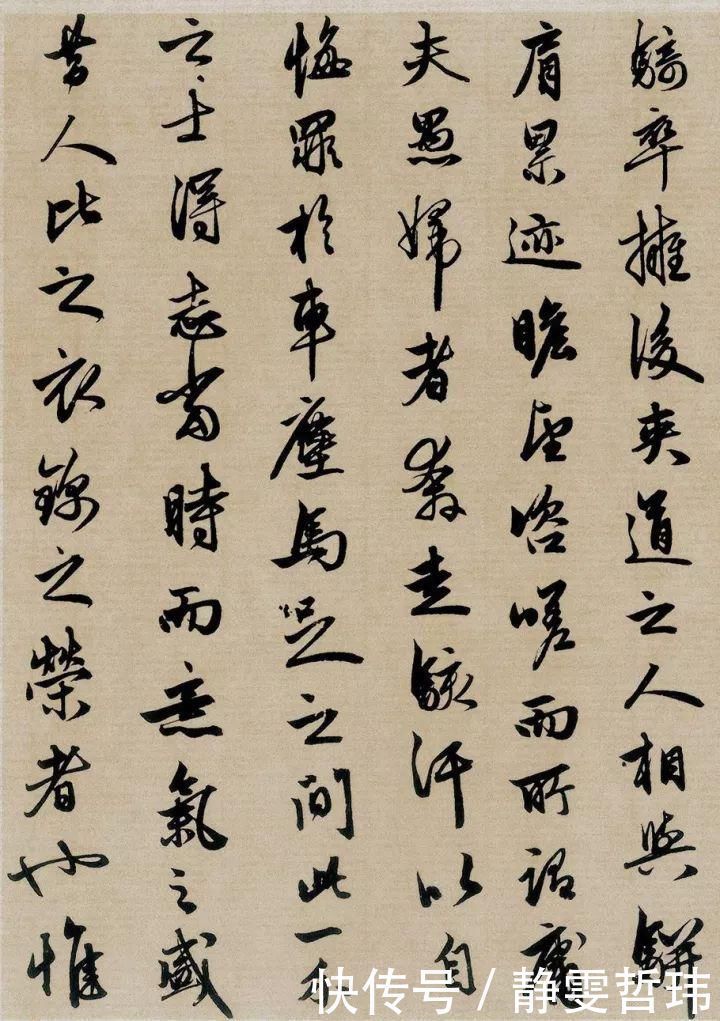 騎卒擁後夾道之人相與駢
肩累迹瞻望咨嗟而所謂庸
夫愚婦者奔走駭汗以自
悔罪於車塵馬足之間此一介
之士得志當時而意氣之盛
昔人比之衣錦之榮者也惟
快传号 / 静雯哲玮